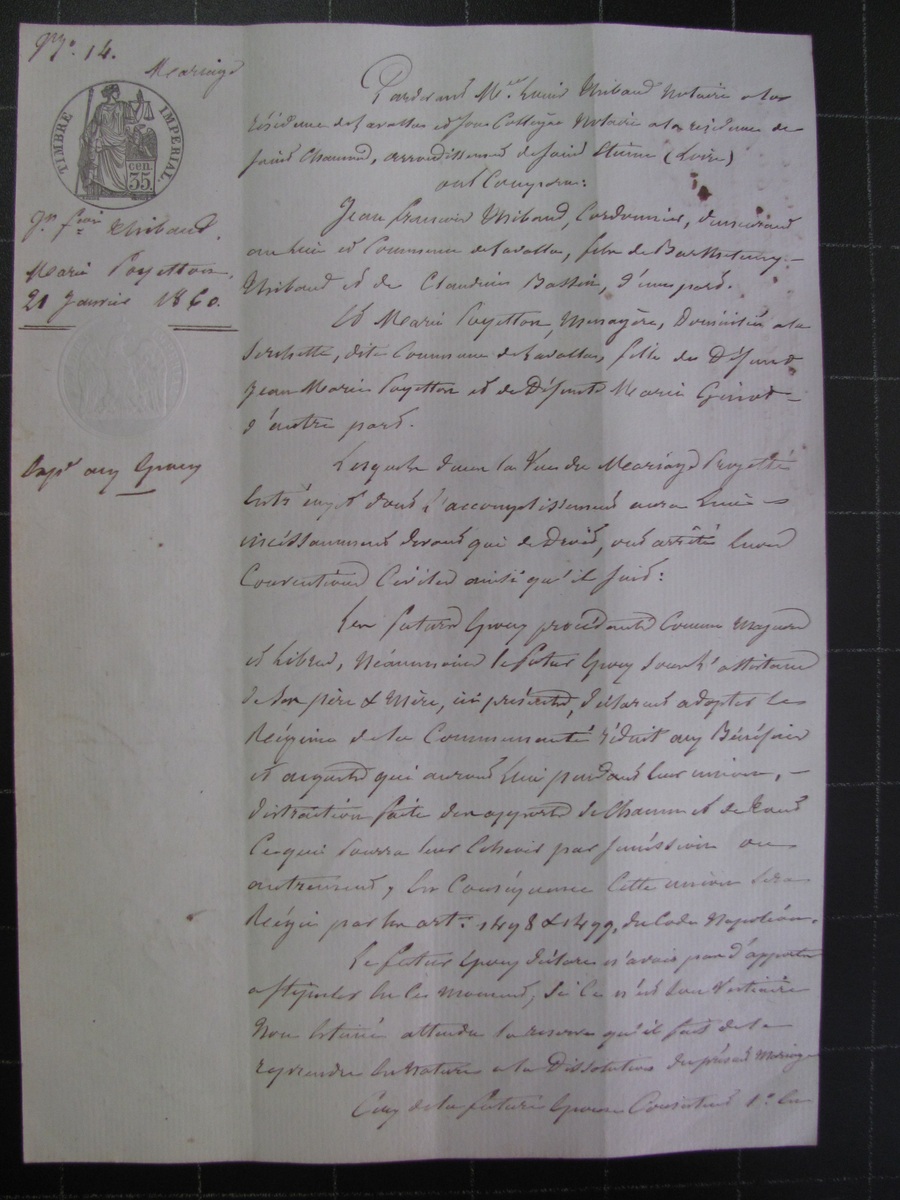 No. 14.
Mariage
TIMBRE IMPERIAL
35 CEN.
Jn. fçois Thibaud
Marie Poyetton
21 Janvier 1860.
Expn aux Epoux
Pardevant Me. Louis Thibaud Notaire a la
résidence de Lavalla et son Collègue Notaire a la résidence de
Saint Chamond, arrondissement de Saint Etienne (Loire)
ont Comparu:
Jean François Thibaud, Cordonnier, demeurant
au lieu et Commune de Lavalla, fils de Barthelemy
Thibaud et de Claudine Bassin, d'une part.
Et Marie Poyetton, Menagère, Domiciliée a la
dite Commune de Lavalla, fille de Défunt
Jean Marie Poyetton et de Défunte Marie Ginot
d'autre part.
Lesquels dans la Vue du Mariage Projetté
entr'eux et dont l'accomplissement aura Lieu
incéssamment devant qui de Droit, ont arrêté Leurs
Conventions Civiles ainsi qu'il suit:
Les futurs Epoux procédants Comme Majeurs
et Libres, Néanmoins le futur Epoux sous l'assistance
de Ses père & Mère, ici présents, déclarent adopter le
Régime de la Communauté réduit aux Bénéfices
et acquets qui auront Lieu pendant leur union,
distraction faite des apports de Chacun et de tout
Ce qui pourra leur Echoir par Succéssion ou
autrement, En Conséquence Cette union sera
Régie par les arts. 1498 & 1499, du Code Napoléon.
Le futur Epoux déclare n'avoir pas d'apports
a Stipuler En Ces Moment, Si Ce n'est Son Vestiaire
Non Estimé attendu la reserve qu'il fait de le
reprendre En Nature a la Dissolution du présent Mariage
Ceux de la future Epouse Consistent 1o. En